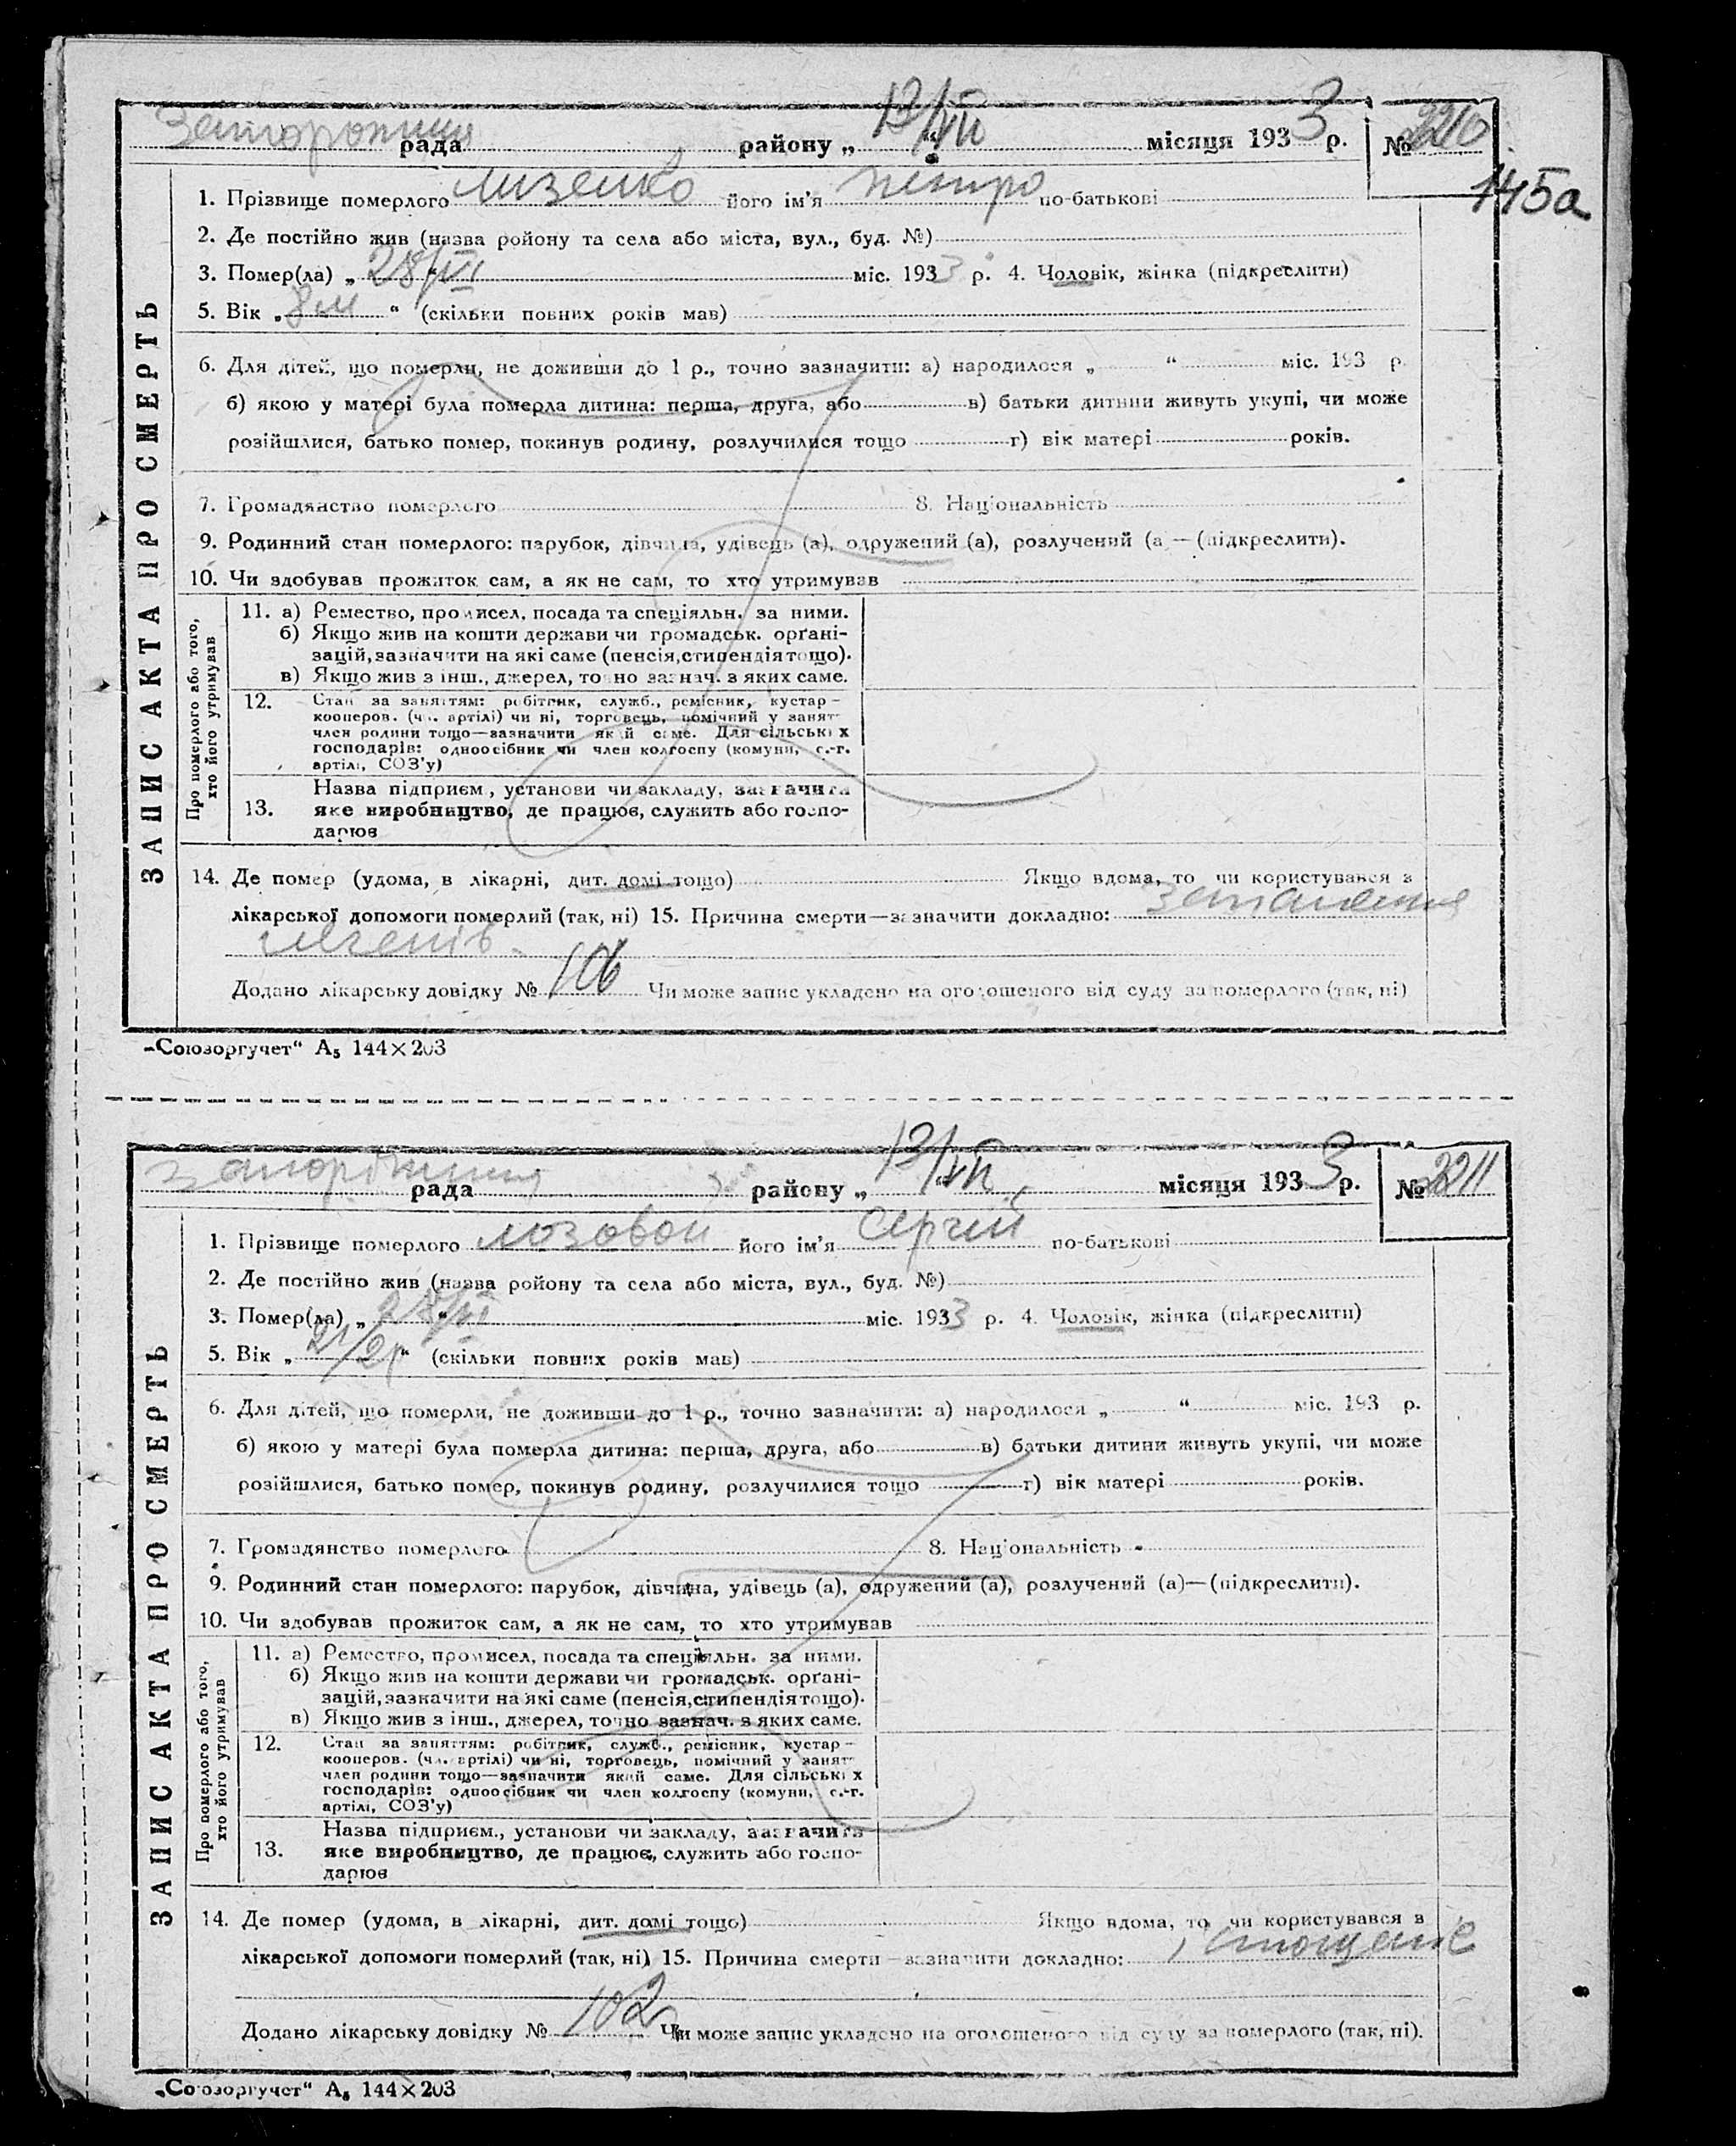 рада району „13/VII“ місяця 1933 р. №
145а
1. Прізвище померлого Лизенко його ім'я Петро по-батькові
2. Де постійно жив (назва ройону та села або міста, вул., буд. №)
3. Помер(ла) „28/VI“ міс. 1933 р. 4. Чоловік, жінка (підкреслити)
5. Вік „8 м“ (скільки повних років мав)
6. Для дітей, що померли, не доживши до 1 р., точно зазначити: а) народилося „ “ міс. 193 р.
б) якою у матері була померла дитина: перша, друга, або в) батьки дитини живуть укупі, чи може
розійшлися, батько помер, покинув родину, розлучилися тощо г) вік матері років.
7. Громадянство померлого 8. Національність
9. Родинний стан померлого: парубок, дівчина, удівець (а), одружений (а), розлучений (а — (підкреслити).
10. Чи здобував прожиток сам, а як не сам, то хто утримував
ЗАПИС АКТА ПРО СМЕРТЬ
Про померлого або того,
хто його утримував
11. а) Ремество, промисел, посада та спеціяльн. за ними.
б) Якщо жив на кошти держави чи громадськ. орґані-
зацій, зазначити на які саме (пенсія, стипендія тощо).
в) Якщо жив з інш., джерел, точно зазнач. з яких саме.
12. Стан за заняттям: робітник, служб., ремісник, кустар—
кооперов. (чл. артілі) чи ні, торговець, помічний у занят
член родини тощо—зазначити який саме. Для сільських
господарів: одноосібник чи член колгоспу (комуни, с.-г.
артілі, СОЗ'у)
13. Назва підприєм., установи чи закладу, зазначити
яке виробництво, де працює, служить або госпо-
дарює
14. Де помер (удома, в лікарні, дит. домі тощо) Якщо вдома, то чи користувався з
лікарської допомоги померлий (так, ні) 15. Причина смерти—зазначити докладно: Запалення
легенів.
Додано лікарську довідку № 106 Чи може запис укладено на оголошеного від суду за померлого (так, ні)
„Союзоргучет“ А₅ 144×203
рада району „13/VII“ місяця 1933 р. № 2211
1. Прізвище померлого Лозовой його ім'я Сергій по-батькові
2. Де постійно жив (назва ройону та села або міста, вул., буд. №)
3. Помер(ла) „28/VI“ міс. 1933 р. 4. Чоловік, жінка (підкреслити)
5. Вік „ “ (скільки повних років мав)
6. Для дітей, що померли, не доживши до 1 р., точно зазначити: а) народилося „ “ міс. 193 р.
б) якою у матері була померла дитина: перша, друга, або в) батьки дитини живуть укупі, чи може
розійшлися, батько помер, покинув родину, розлучилися тощо г) вік матері років.
7. Громадянство померлого 8. Національність
9. Родинний стан померлого: парубок, дівчина, удівець (а), одружений (а), розлучений (а)—(підкреслити).
10. Чи здобував прожиток сам, а як не сам, то хто утримував
ЗАПИС АКТА ПРО СМЕРТЬ
Про померлого або того,
хто його утримував
11. а) Ремество, промисел, посада та спеціяльн. за ними.
б) Якщо жив на кошти держави чи громадськ. орґані-
зацій, зазначити на які саме (пенсія, стипендія тощо).
в) Якщо жив з інш., джерел, точно зазнач. з яких саме.
12. Стан за заняттям: робітник, служб., ремісник, кустар—
кооперов. (чл. артілі) чи ні, торговець, помічний у занят
член родини тощо—зазначити який саме. Для сільських
господарів: одноосібник чи член колгоспу (комуни, с.-г.
артілі, СОЗ'у)
13. Назва підприєм., установи чи закладу, зазначити
яке виробництво, де працює, служить або госпо-
дарює
14. Де помер (удома, в лікарні, дит. домі тощо) Якщо вдома, то чи користувався з
лікарської допомоги померлий (так, ні) 15. Причина смерти—зазначити докладно: істощеніє
Додано лікарську довідку № 102 Чи може запис укладено на оголошеного від суду за померлого (так, ні).
„Союзоргучет“ А₅ 144×203